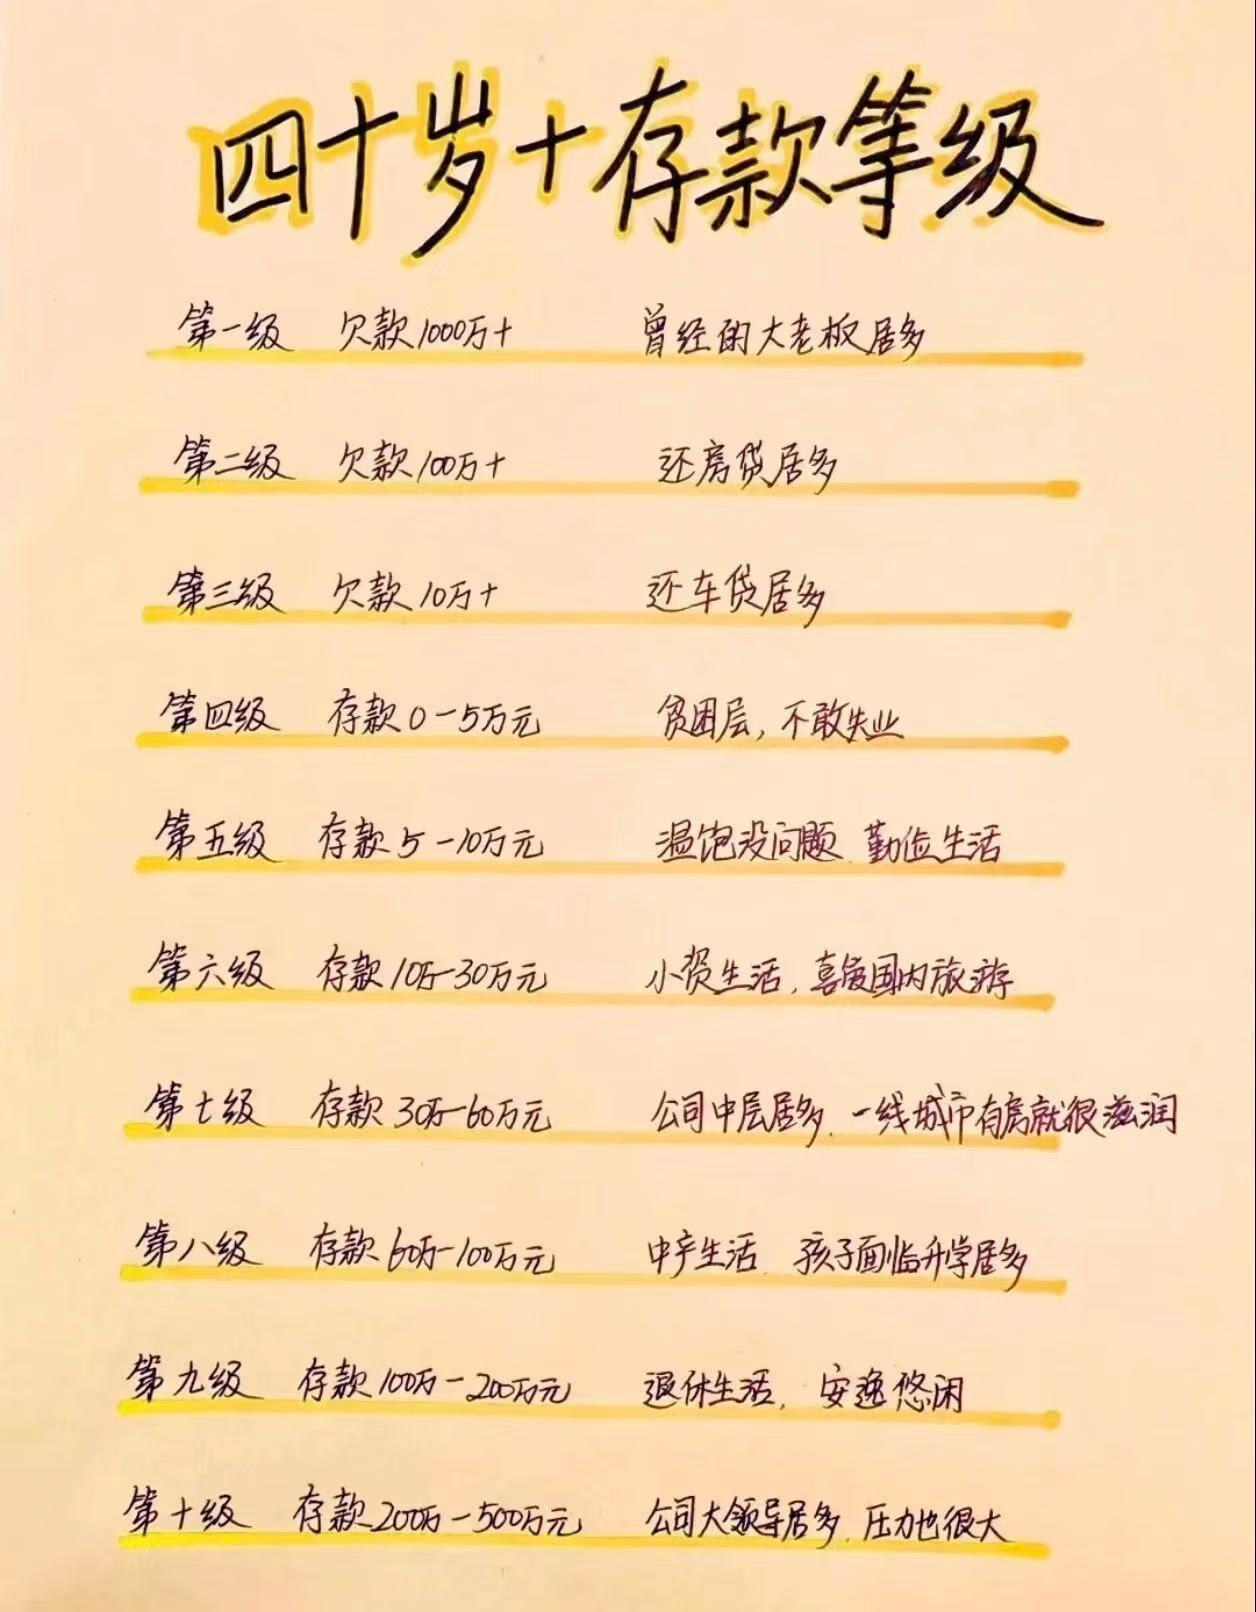 四十岁+存款等级
第一级 欠款1000万+ 曾经的大老板居多
第二级 欠款100万+ 还房贷居多
第三级 欠款10万+ 还车贷居多
第四级 存款0-5万元 贫困层，不敢失业
第五级 存款5-10万元 温饱没问题，勤俭生活
第六级 存款10万-30万元 小资生活，喜爱国内旅游
第七级 存款30万-60万元 公司中层居多，一线城市有房就很滋润
第八级 存款60万-100万元 中产生活，孩子面临升学居多
第九级 存款100万-200万元 退休生活，安逸悠闲
第十级 存款200万-500万元 公司大领导居多，压力也很大